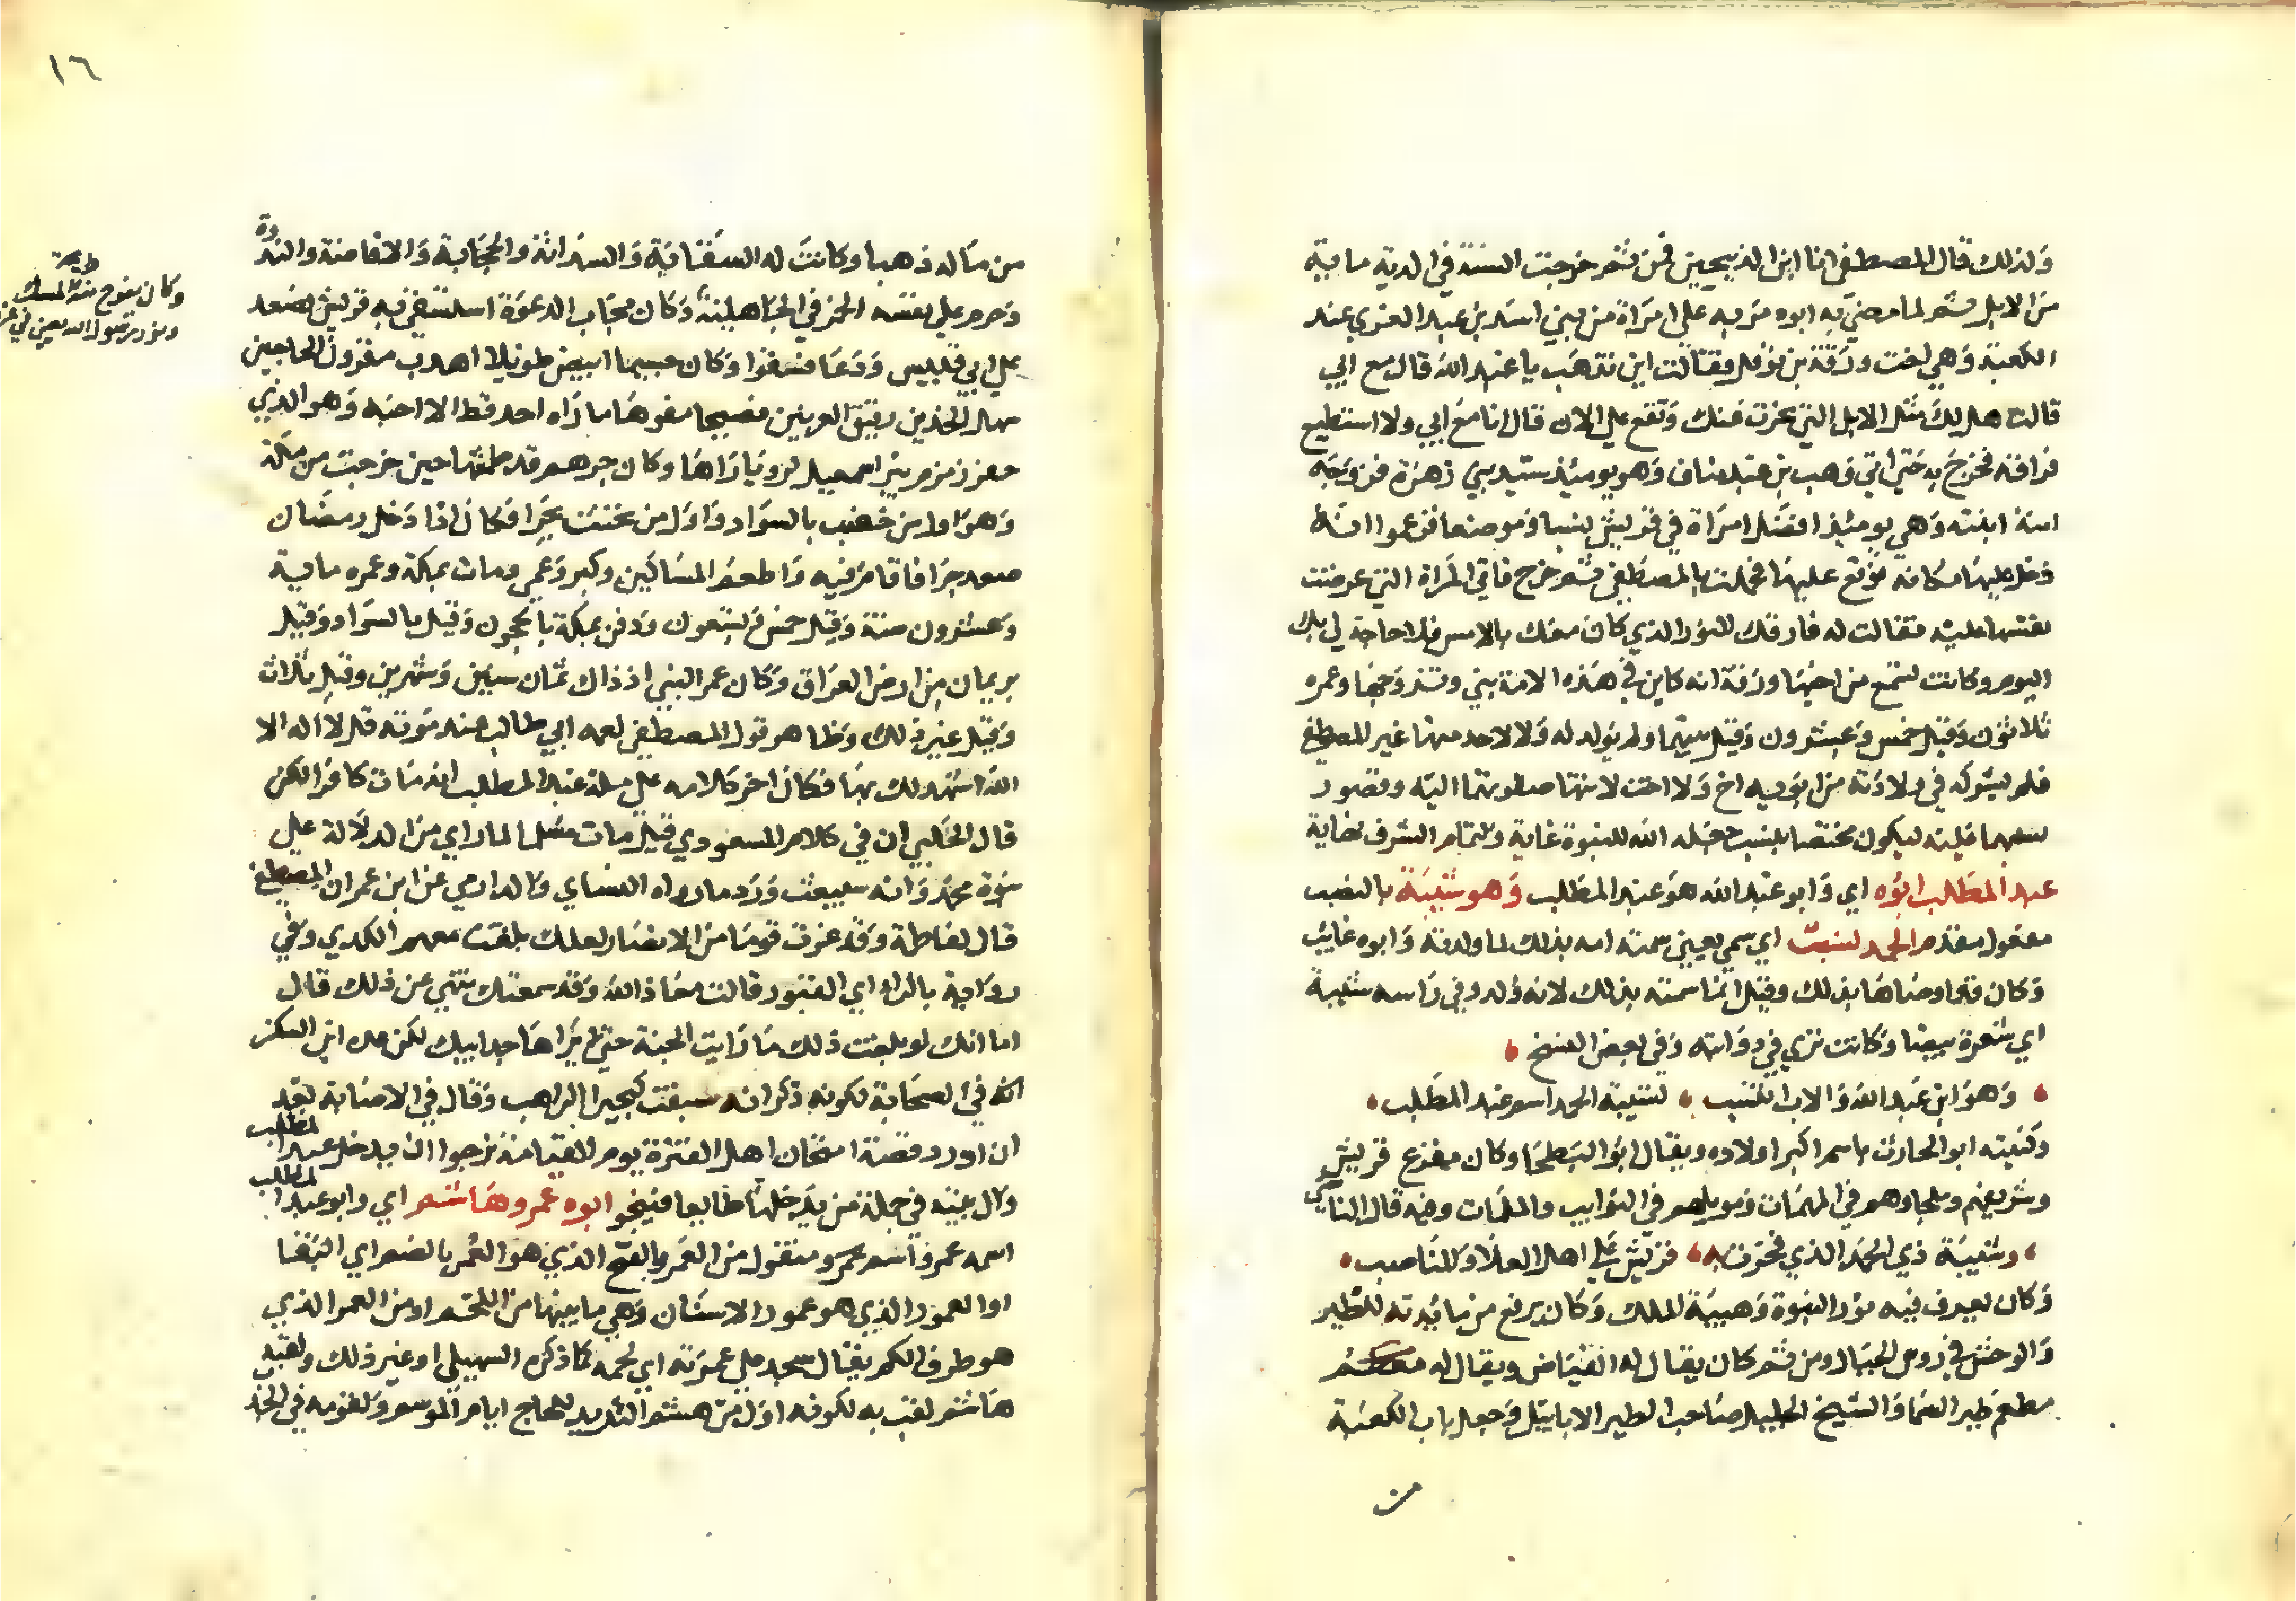 ولذلك قال المصطفى انا ابن الذبيحين فمن ثم خرجت السنة في الدية ماية
من الابل ثم لما مضي به ابوه مر به على امراة من بني اسد بن عبد العزي عند
الكعبة وهي اخت ورقة بن نوفل فقالت اين تذهب يا عبد الله قال مع ابي
قالت هل لك مثل الابل التي نحرت عنك وتقع علي الان قال انا مع ابي ولا استطيع
فراقه فخرج به حتي اتي وهب بن عبد مناف وهو يوميذ سيد بني زهرة فزوجه
امنة ابنته وهي يوميذ افضل امراة في قريش نسبا وموضعا فزعموا انه
دخل عليها مكانه فوقع عليها فحملت بالمصطفى ثم خرج فاتي المراة التي عرضت
نفسها عليه فقالت له فارقك النور الذي كان معك بالامس فلا حاجة لي بك
اليوم وكانت تسمع من اخيها ورقة انه كاين في هذه الامة نبي وتزوجها وعمره
ثلاثون وقيل خمس وعشرون وقيل ولم يولد له ولا لاحد منها غير المصطفى
فلم يشركه في ولادته من ابويه اخ ولا اخت لانتها صفوتهما اليه وقصور
نسبهما عليه ليكون مختصا بنسب جعله الله للنبوة غاية ولتمام الشرف نهاية
عبد المطلب ابوه اي وابو عبد الله هو عبد المطلب وهو شيبة بالنصب
مفعول مقدم الحمد لنسبت اي سمي يعني سمته امه بذلك لما ولدته وابوه غايب
وكان قد اوصاها بذلك وقيل انما سمته بذلك لانه ولد وفي راسه شيبة
اي شعرة بيضا وكانت تري في ذوابته وفي بعض النسخ
وهو ابن عبد الله والاب للنسب لشيبة الحمد اسم عبد المطلب
وكنيته ابو الحارث باسم اكبر اولاده ويقال ابو البطحا وكان مفزع قريش
وشريفهم وملجاوهم في المهمات وموئلهم في النوايب والملمات وفيه قال
وشيبة ذي الحمد الذي فخرت به قريش علي اهل العلا والمناصب
وكان يعرف فيه نور النبوة وهيبة الملك وكان يرفع من مايدته للطير
والوحش في روس الجبال ومن ثم كان يقال له الفياض ويقال له
مطعم طير السما والشيخ الجليل صاحب الطير الابابيل وجعل باب الكعبة
من
١٦
من ماله ذهبا وكانت له السقاية والسدانة والحجابة والافاضة والندوة
وحرم علي نفسه الخمر في الجاهلية وكان مجاب الدعوة استسقي به قريش فصعد
علي ابي قبيس ودعا فسقوا وكان جسيما ابيض طويلا اهدب مقرون الحاجبين
سهل الخدين رقيق العرنين فصيحا مفوها ما راه احد قط الا احبه وهو الذي
حفر زمزم بير اسمعيل لرويا راها وكان جرهم قد طمها حين خرجت من مكة
وهو اول من خضب بالسواد واول من تحنث بحرا فكان اذا دخل رمضان
صعد حرا فاقام فيه واطعم المساكين وكبر وعمي ومات بمكة وعمره ماية
وعشرون سنة وقيل خمس وتسعون ودفن بمكة بالحجون وقيل بالسواد وقيل
بريمان من ارض العراق وكان عمر النبي اذ ذاك ثمان سنين وشهرين وقيل ثلاث
وقيل غير ذلك وظاهر قول المصطفى لعمه ابي طالب عند موته قل لا اله الا
الله اشهد لك بها فكان اخر كلامه على ملة عبد المطلب انه مات كافرا لكن
قال الحلبي ان في كلام المسعودي قيل مات مسلما لما راي من الدلالة علي
نبوة محمد وانه سيبعث ورد ما رواه النساي والدارمي عن ابن عمر ان المصطفى
قال لفاطمة وقد عزت قوما من الانصار لعلك بلغت معهم الكدي وفي
رواية بالرا اي القبور قالت معاذ الله وقد سمعتك تنهي عن ذلك قال
اما انك لو بلغت ذلك ما رايت الجنة حتي يراها جد ابيك لكن عده ابن السكن
انه في الصحابة لكونه ذكر انه سيبعث كبحيرا الراهب وقال في الاصابة بعد
ان اورد قصة امتحان اهل الفترة يوم القيامة نرجوا ان يدخل عبد المطلب
وال بيته في جملة من يدخلها طايعا فينجو ابوه عمرو هاشم اي وابو عبد المطلب
اسمه عمرو اسم عمرو منقول من العمر بالفتح الذي هو العمر بالضم اي البقا
او العمور الذي هو عمود الاسنان وهي ما بينها من اللحم او من العمر الذي
هو طرف الكم يقال سجد علي عمريه اي كما ذكره السهيلي او غير ذلك ولقب
هاشم لقب به لكونه اول من هشم الثريد للحاج ايام الموسم ولقومه في
وكان يفوح منه رايحة المسك
ونور رسول الله يعني في غرته